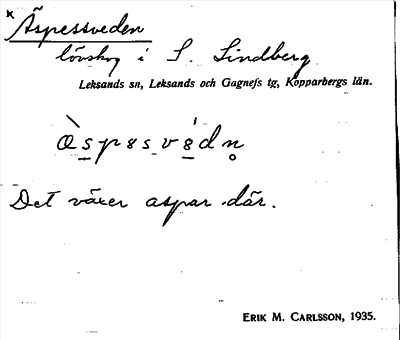 * Äspessveden
lövskog i S. Lindberg
Leksands sn, Leksands och Gagnefs tg, Kopparbergs län.
Det växer aspar där.
ERIK M. CARLSSON, 1935.